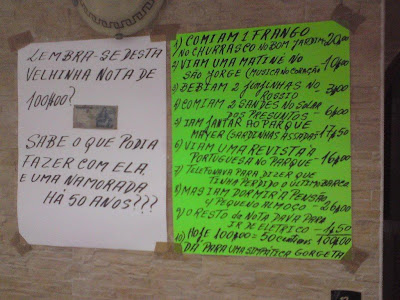 LEMBRA-SE DESTA
VELHINHA NOTA DE
100$00?
SABE O QUE PODIA
FAZER COM ELA
E UMA NAMORADA
HÁ 50 ANOS???
1) COMIAM 1 FRANGO
NO CHURRASCO NO BOM JARDIM 20$00
2) VIAM UMA MATINE NO
SÃO JORGE (MUSICA NO CORAÇÃO 10$00
3) BEBIAM 2 GINJINHAS NO
ROSSIO 3$00
4) COMIAM 2 SANDES NO SOLAR
DOS PRESUNTOS - 6$00
5) IAM JANTAR AO PARQUE
MAYER (SARDINHAS ASSADAS) 17$50
6) VIAM UMA REVISTA À
PORTUGUESA NO PARQUE - 16$00
7) TELEFONAVA PARA DIZER QUE
TINHA PERDIDO O ULTIMO BARCO
8) MAS IAM DORMIR À PENSÃO
Y PEQUENO ALMOÇO - 26$00
9) O RESTO DA NOTA DAVA PARA
IR DE ELETRICO - 1$50
10) HOJE 100$00 = 50 CENTIMOS 100$00
DÁ PARA UMA SIMPÁTICA GORGETA